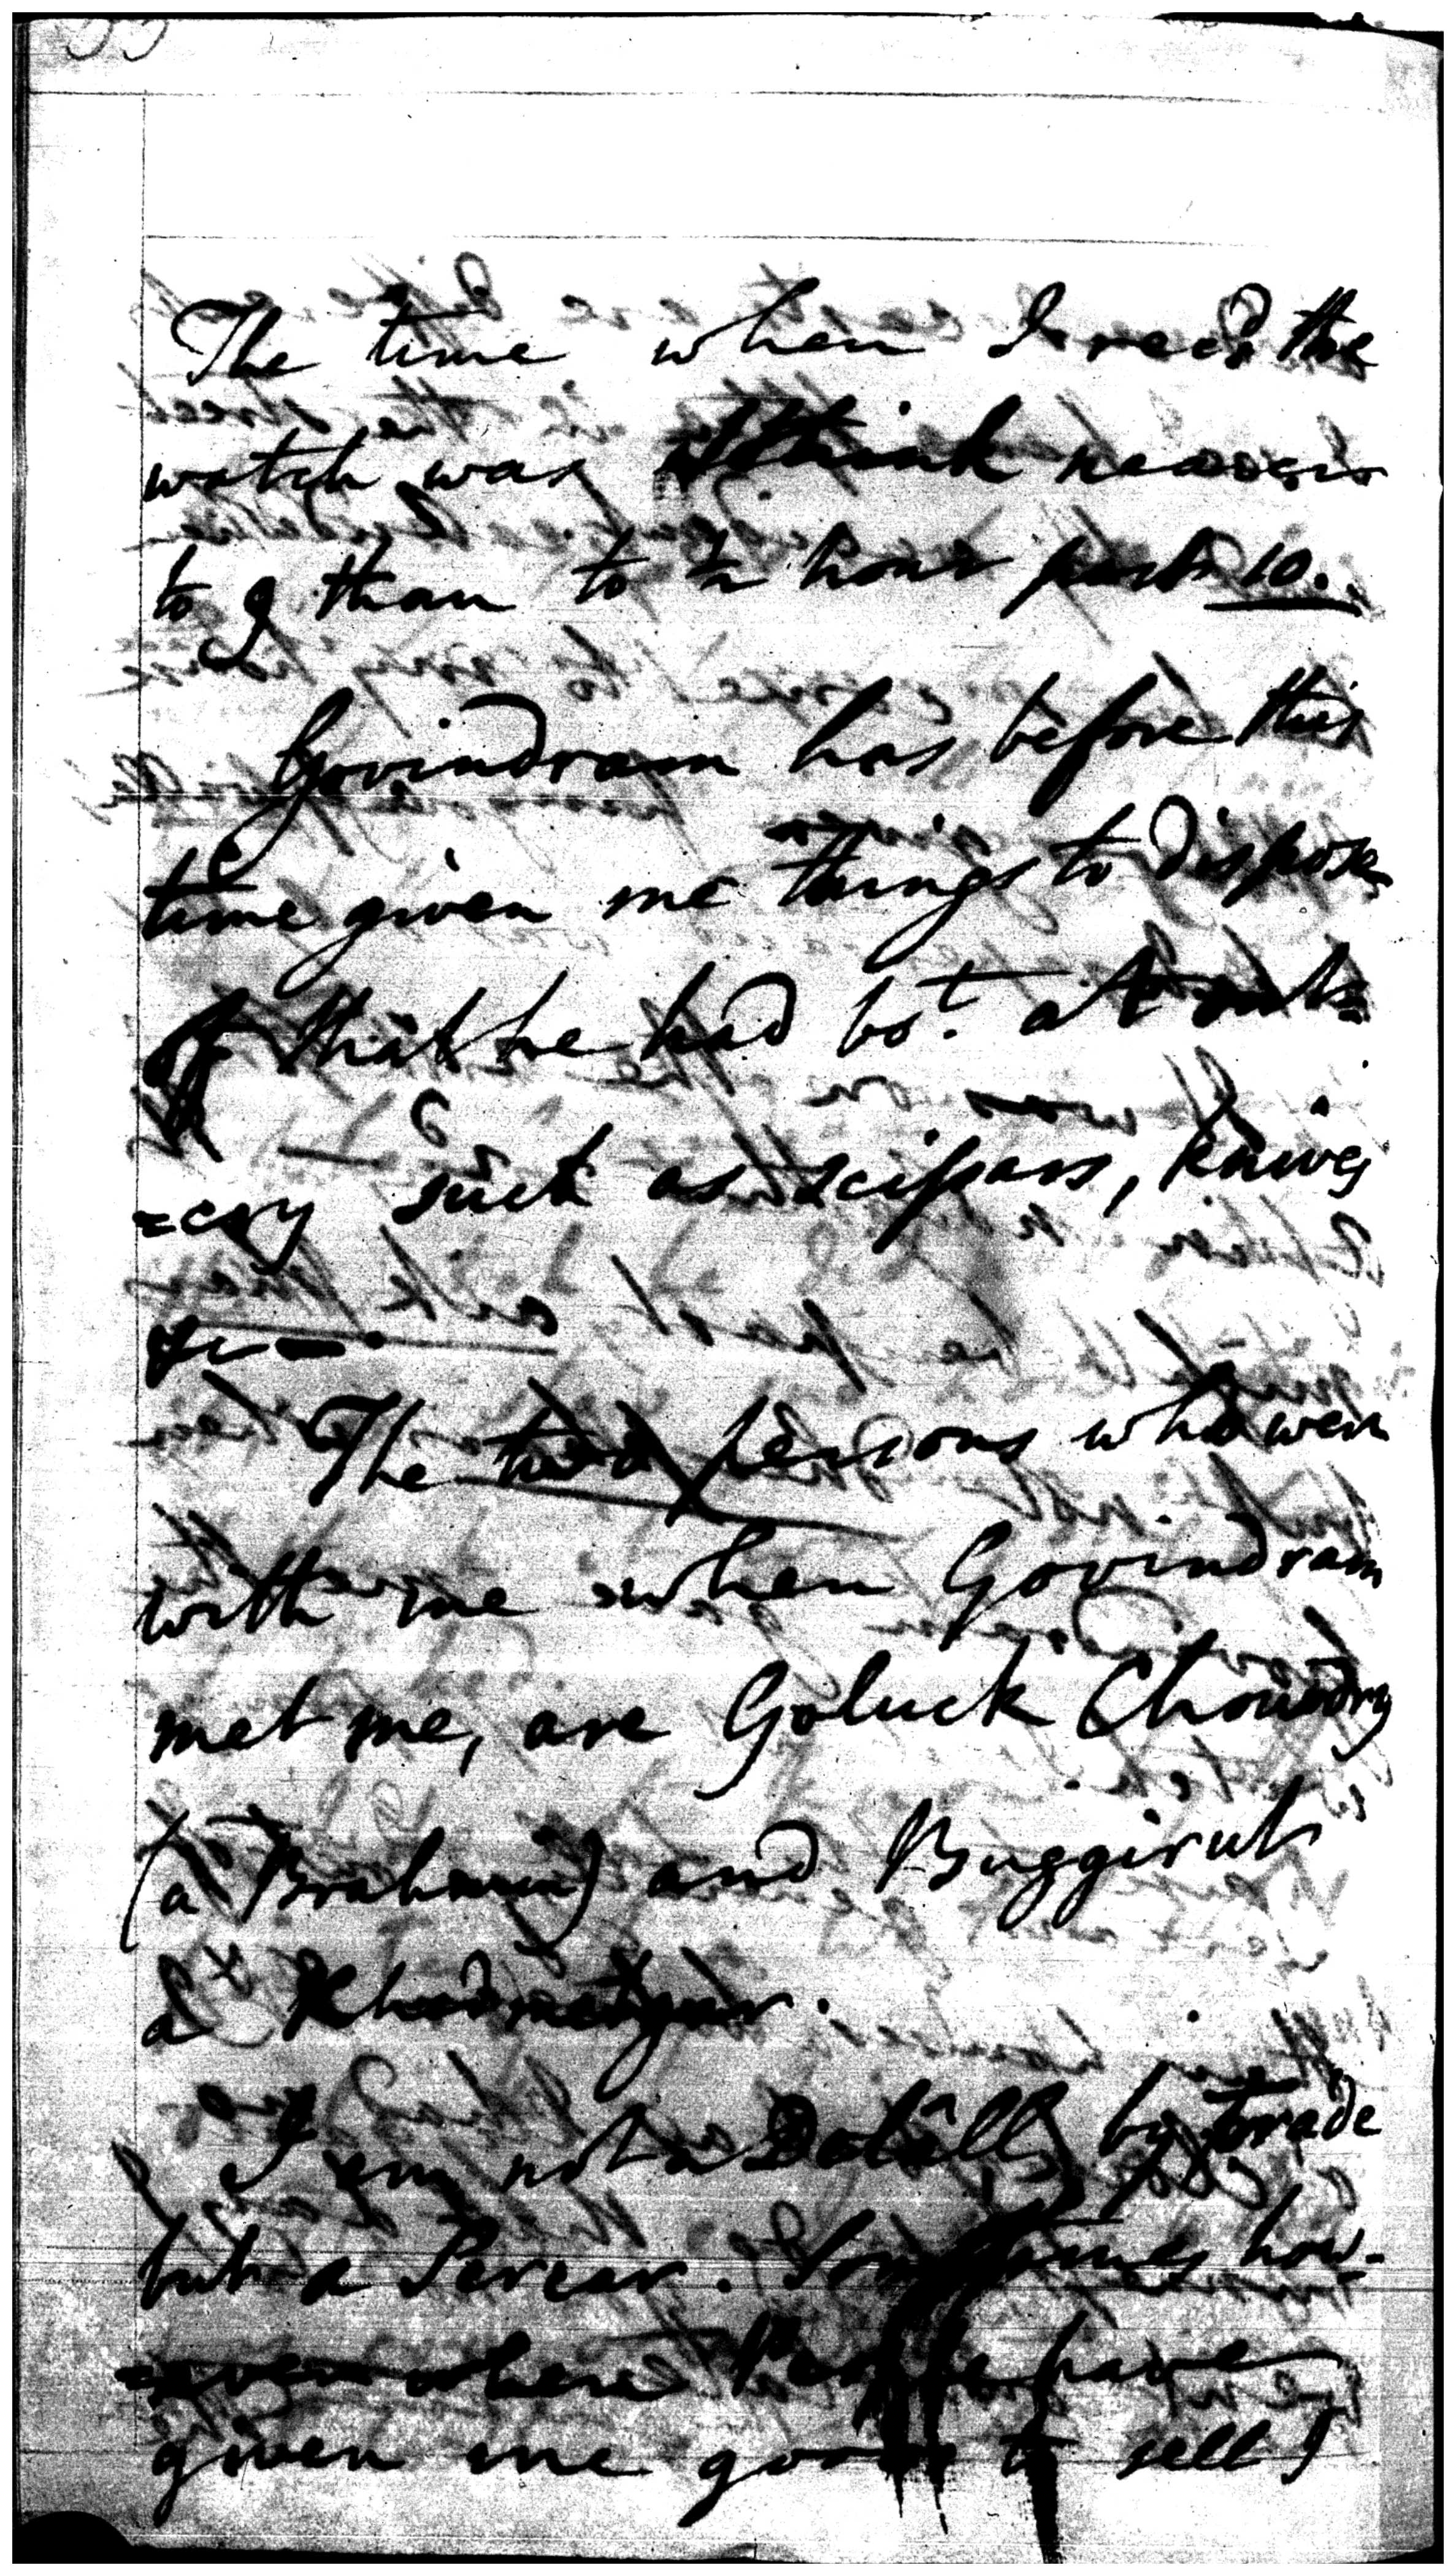 The time when I recd the
watch was I think nearer
to 9 than to ½ hour past 10.
Govindram has before this
time given me things to dispose
of that he had bot. at out=
=cry such as scissars, knives
&c —.
The two persons who were
with me when Govindram
met me, are Goluck Chowdry
(a Brahmin) and Buggirut
a Khodmatgar.
I am not a Delâll by trade
but a Sercar. Sometimes how-
=ever where People have
given me goods to sell I